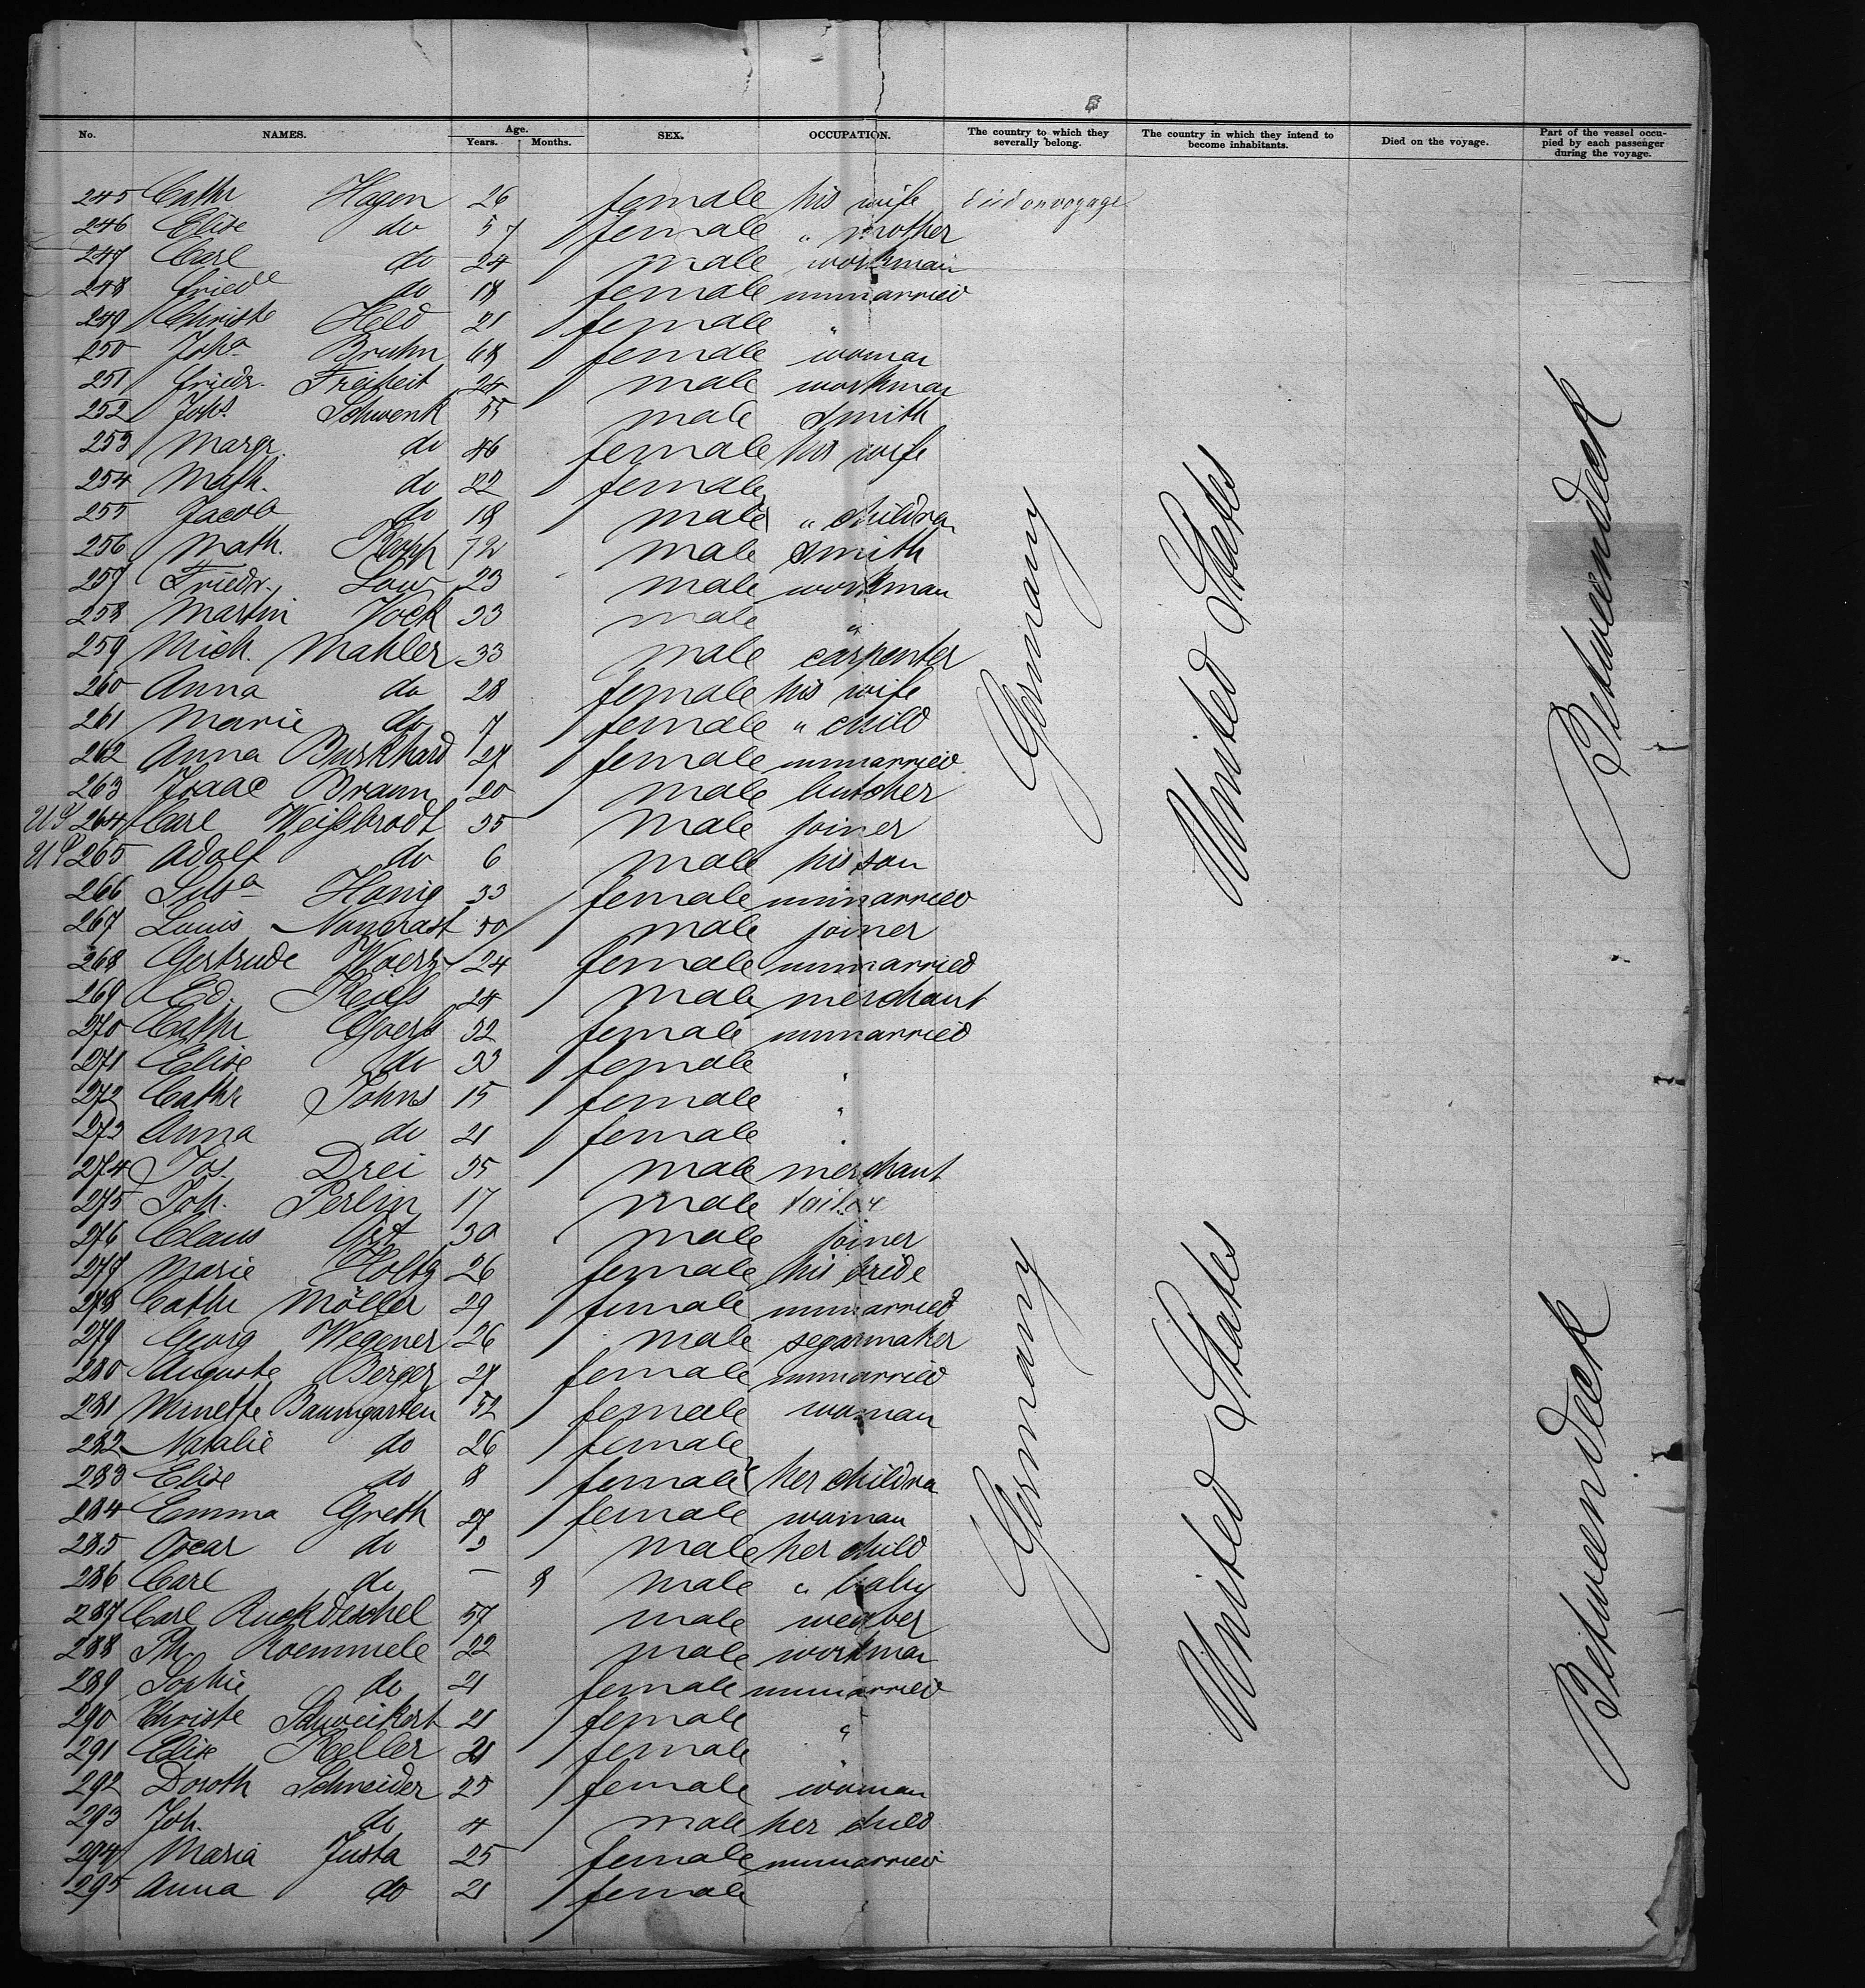 No. NAMES. Age. Years. Months. SEX. OCCUPATION. The country to which they severally belong. The country in which they intend to become inhabitants. Died on the voyage. Part of the vessel occupied by each passenger during the voyage.
245 Cathr Hagen 26 female his wife died on voyage
246 Elise do 57 female " mother
247 Carl do 24 male workman
248 Friedl do 18 female unmarried
249 Christe Held 21 female "
250 Joha Bruhn 68 female woman
251 Friedr. Freiheit 24 male workman
252 Johs. Schwenk 55 male Smith
253 Margr. do 46 female his wife
254 Math. do 22 female
255 Jacob do 18 male " children
256 Math. Kopp 72 male Smith
257 Friedr. Low 23 male workman
258 Martin Vock 33 male "
259 Mich. Mahler 33 male carpenter
260 Anna do 28 female his wife
261 Marie do 7 female " child
262 Anna Burkhard 27 female unmarried
263 Isaac Braun 20 male butcher
US 264 Carl Weißbrodt 35 male joiner
US 265 Adolf do 6 male his son
266 Susa Honig 33 female unmarried
267 Louis 50 male joiner
268 Gertrude Woerz 24 female unmarried
269 Ed. Reiss 24 male merchant
270 Cathr Goerss 32 female unmarried
271 Elise do 33 female "
272 Cathr Johns 15 female "
273 Anna do 21 female "
274 Jos. Drei 35 male merchant
275 Joh. Perlin 17 male tailor
276 Claus Arzt 30 male joiner
277 Marie Holtz 26 female his bride
278 Cathr Möller 29 female unmarried
279 Georg Wegener 26 male segarmaker
280 Auguste Berger 27 female unmarried
281 Minette Baumgarten 52 female woman
282 Natalie do 26 female
283 Elise do 8 female her children
284 Emma Greth 27 female woman
285 Oscar do 3 male her child
286 Carl do - 8 male " baby
287 Carl Ruckdeschel 57 male weaver
288 Ph. Roemmele 22 male workman
289 Sophie do 21 female unmarried
290 Christe Schweikert 21 female "
291 Elise Keller 21 female "
292 Doroth Schneider 25 female woman
293 Joh. do 4 male her child
294 Maria Justa 25 female unmarried
295 Anna do 21 female "
Germany
United States
Betweendeck
Germany
United States
Betweendeck